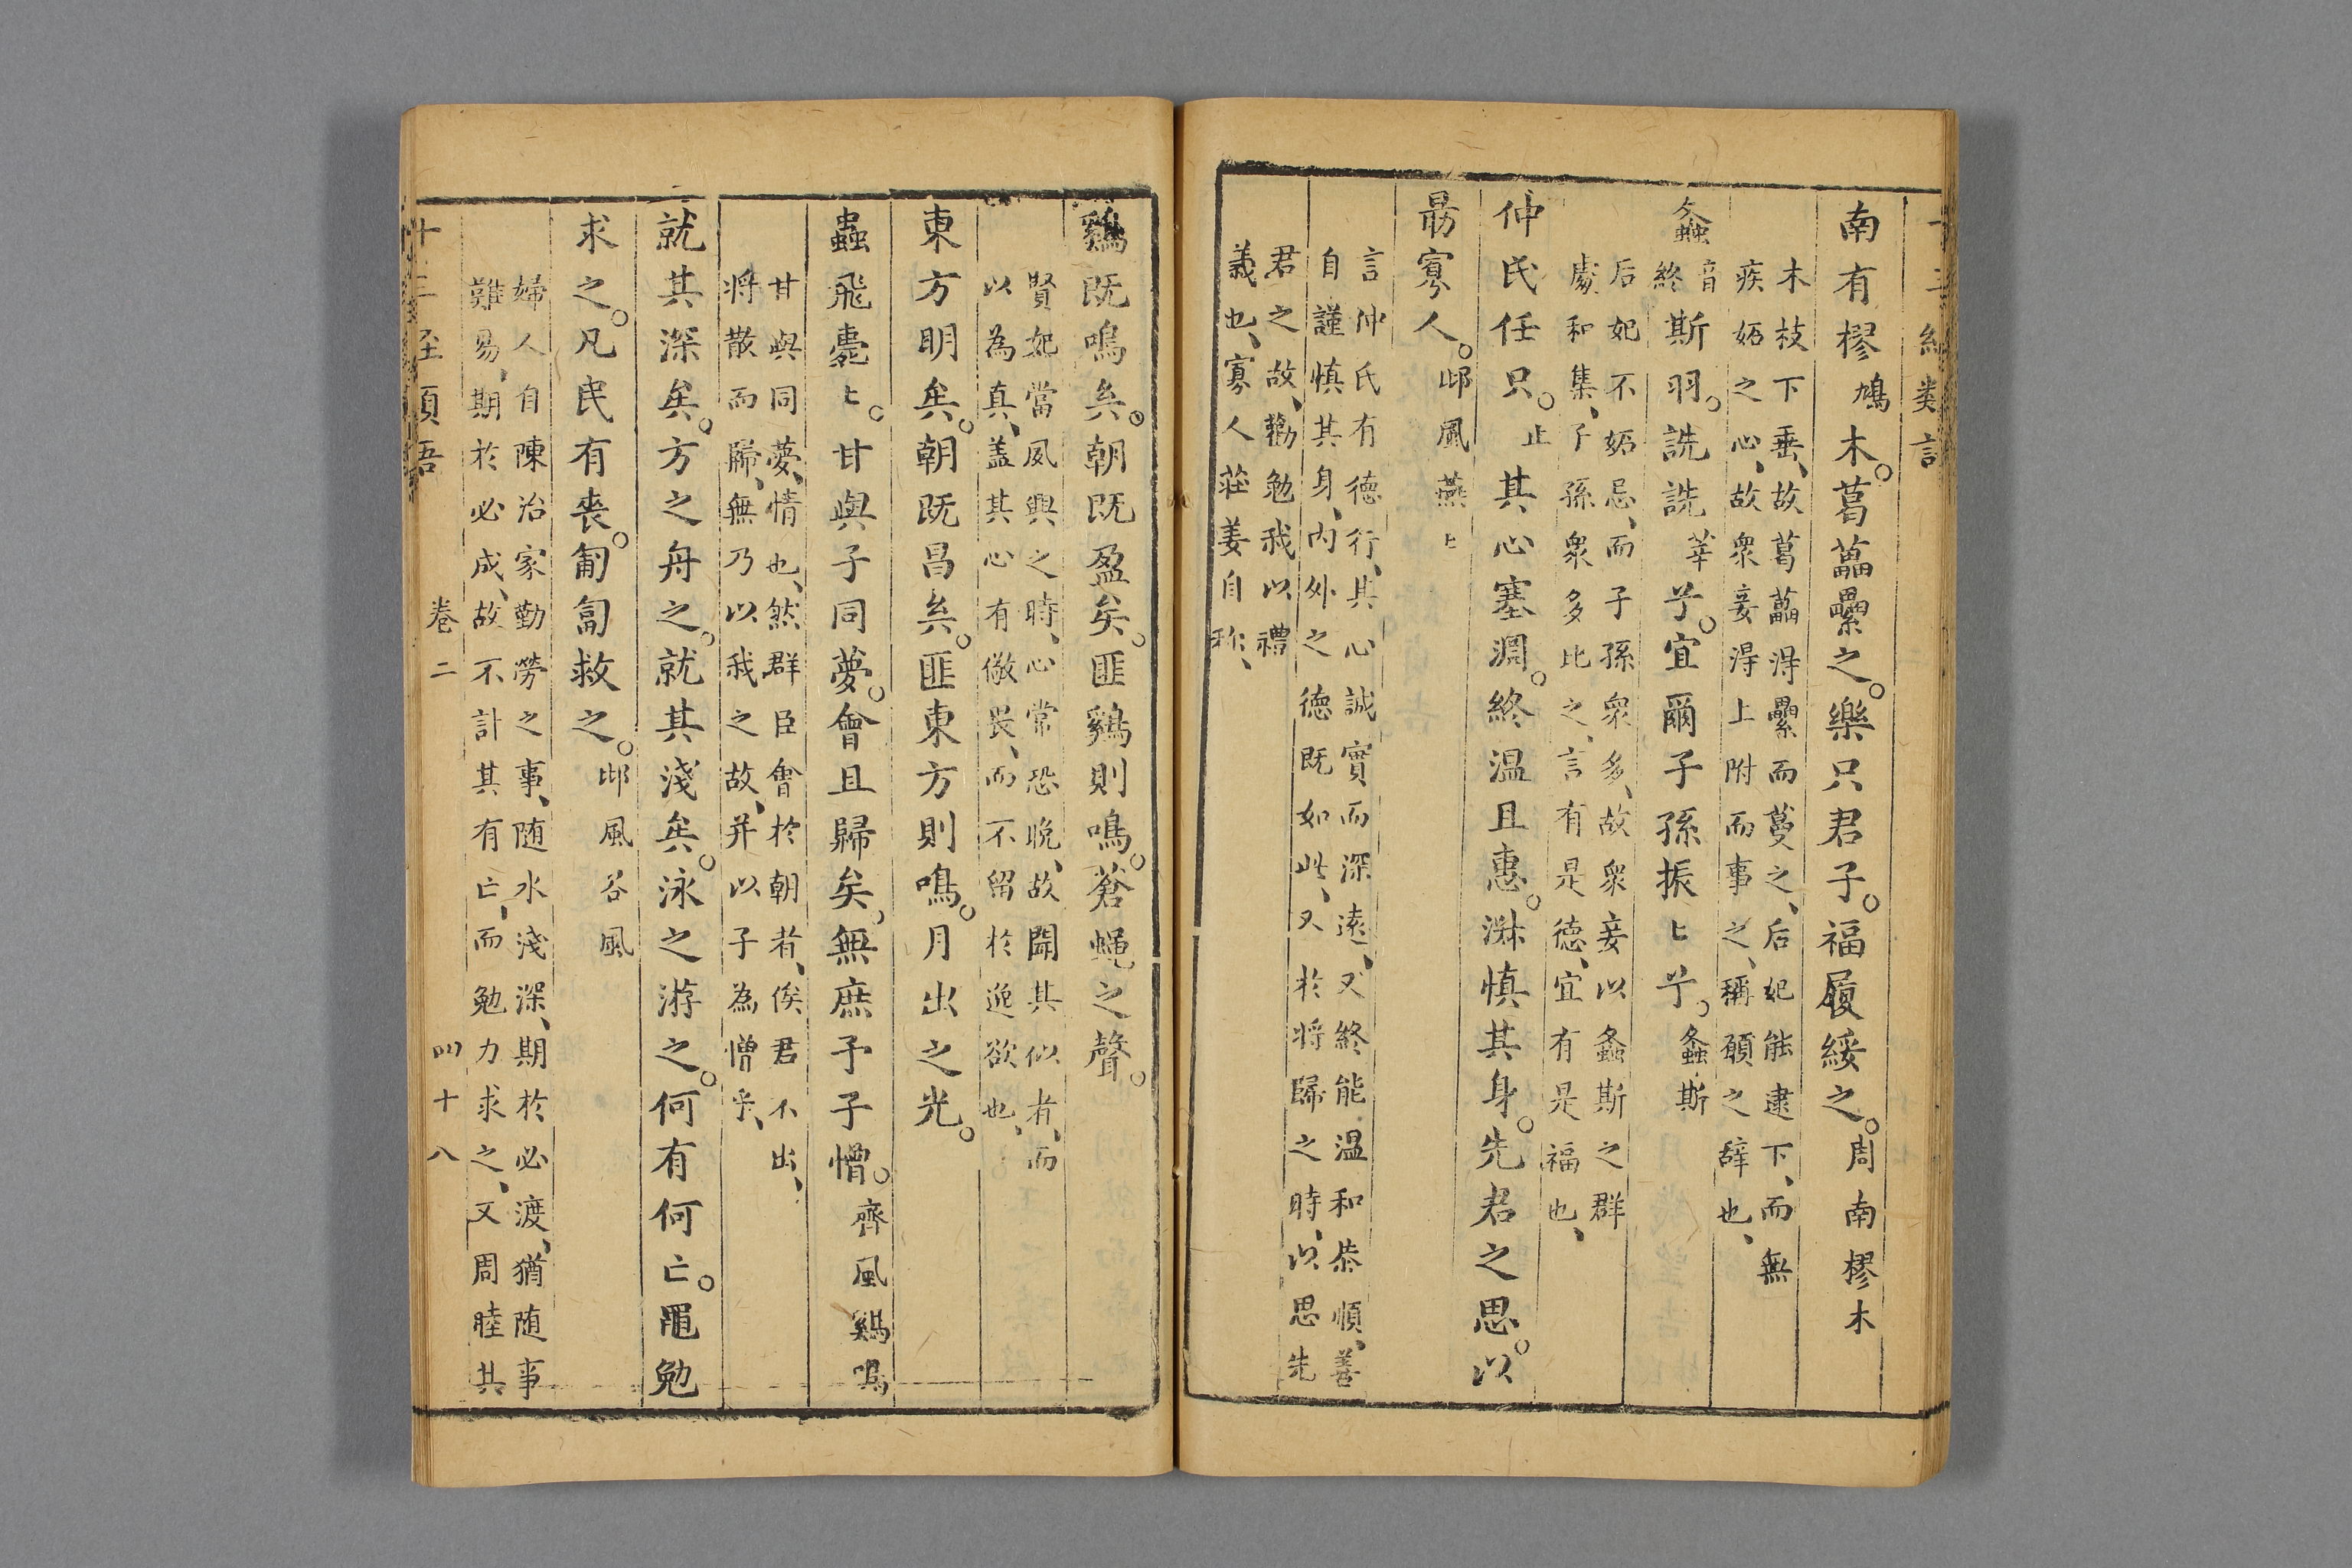 南有樛鳩木葛藟纍之樂只君子福履綏之周南樛木
木枝下垂故葛藟得纍而蔓之后妃能逮下而無
疾妬之心故衆妾得上附而事之稱願之辞也
螽音終斯羽詵詵莘兮宜爾子孫振〻兮螽斯
后妃不妬忌而子孫衆多故衆妾以螽斯之群
處和集子孫衆多比之言有是德宜有是福也
仲氏任只止其心塞淵終温且惠淑慎其身先君之思以
勗寡人邶風燕〻
言仲氏有德行其心誠實而深遠又終能温和恭順善
自謹慎其身内外之德既如此又於将歸之時以思先
君之故勸勉我以禮
義也寡人莊姜自称
鷄既鳴矣朝既盈矣匪鷄則鳴蒼蝇之聲
賢妃當夙興之時心常恐晚故聞其似者而
以為真盖其心有儆畏而不留於逸欲也
東方明矣朝既昌矣匪東方則鳴月出之光
蟲飛薨〻甘與子同夢會且歸矣無庶予子憎齊風鷄鳴
甘與同夢情也然群臣會於朝者俟君不出
将散而歸無乃以我之故并以子為憎乎
就其深矣方之舟之就其淺矣泳之游之何有何亡黽勉
求之凡民有喪匍匐救之邶風谷風
婦人自陳治家勤勞之事随水淺深期於必渡猶随事
難易期於必成故不計其有亡而勉力求之又周睦其
卷二 四十八